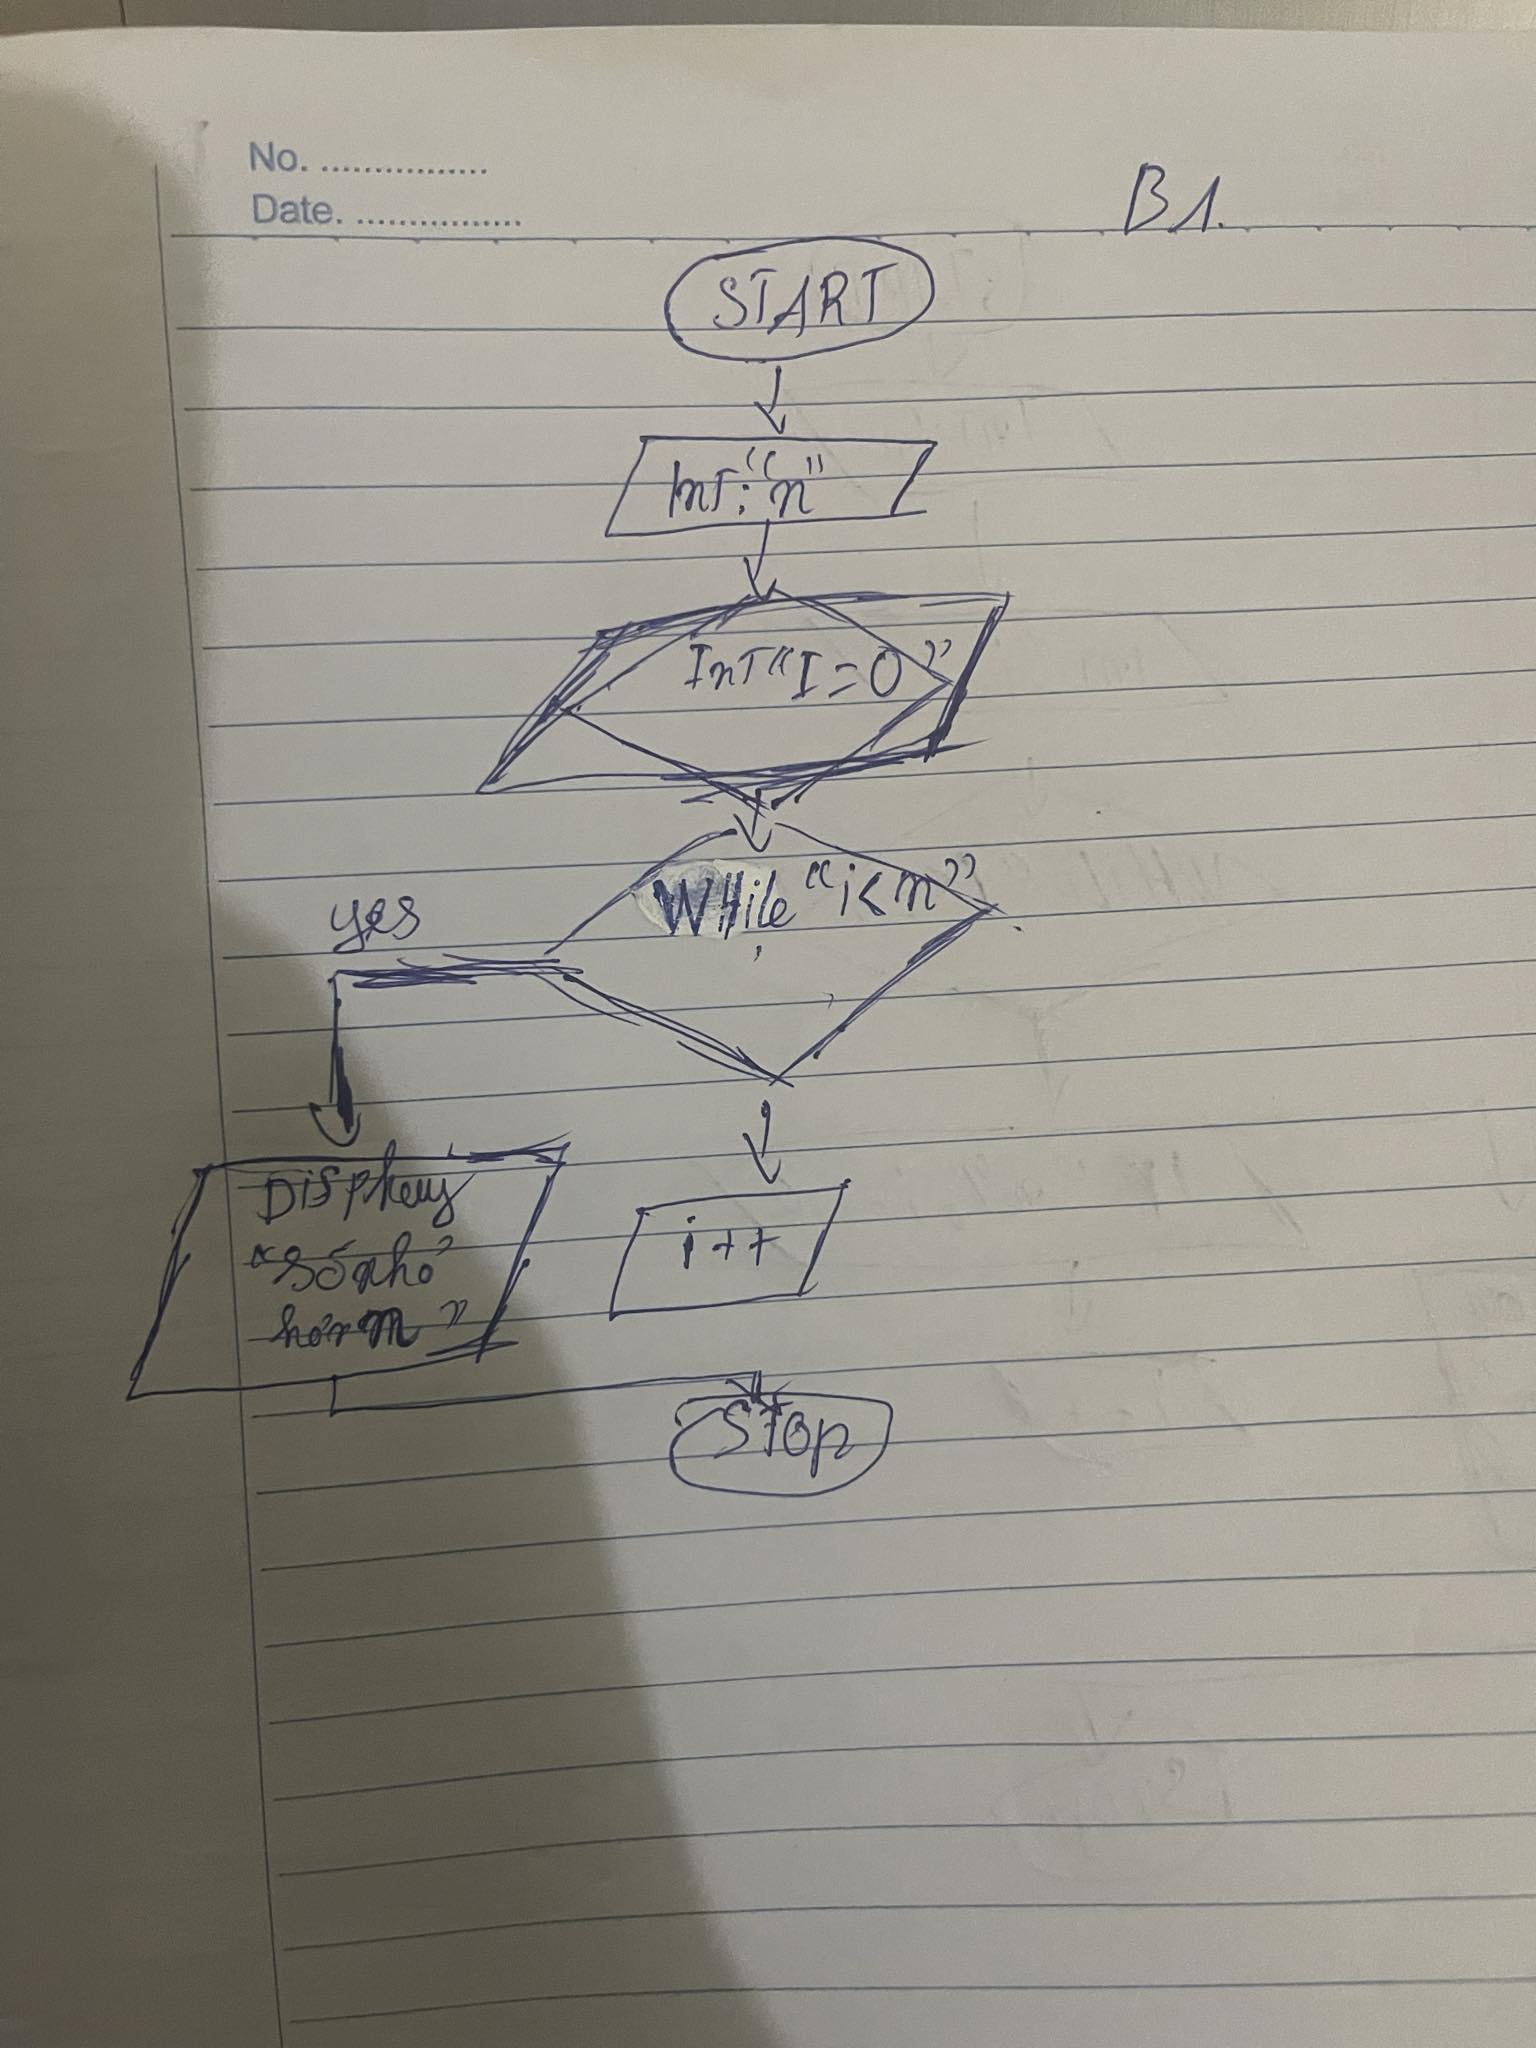 No. ................
Date. ................
B1.
START
Int: "n"
Int "I=0"
While "i<n"
yes
Display
"số nhỏ
hơn n"
i++
Stop